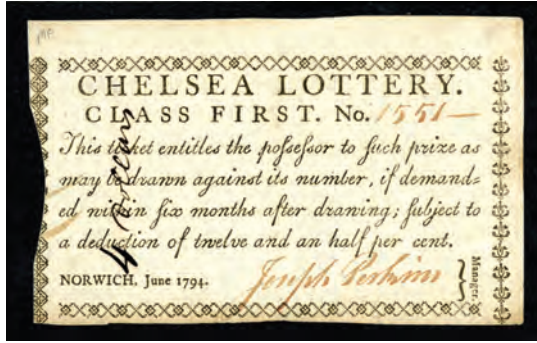 CHELSEA LOTTERY.
CLASS FIRST. No. 1551—
This ticket entitles the poſſeſſor to ſuch prize as
may be drawn against its number, if demand=
ed within ſix months after drawing; ſubject to
a deduction of twelve and an half per cent.
NORWICH, June 1794.
Joseph Perkins
Manager.
4